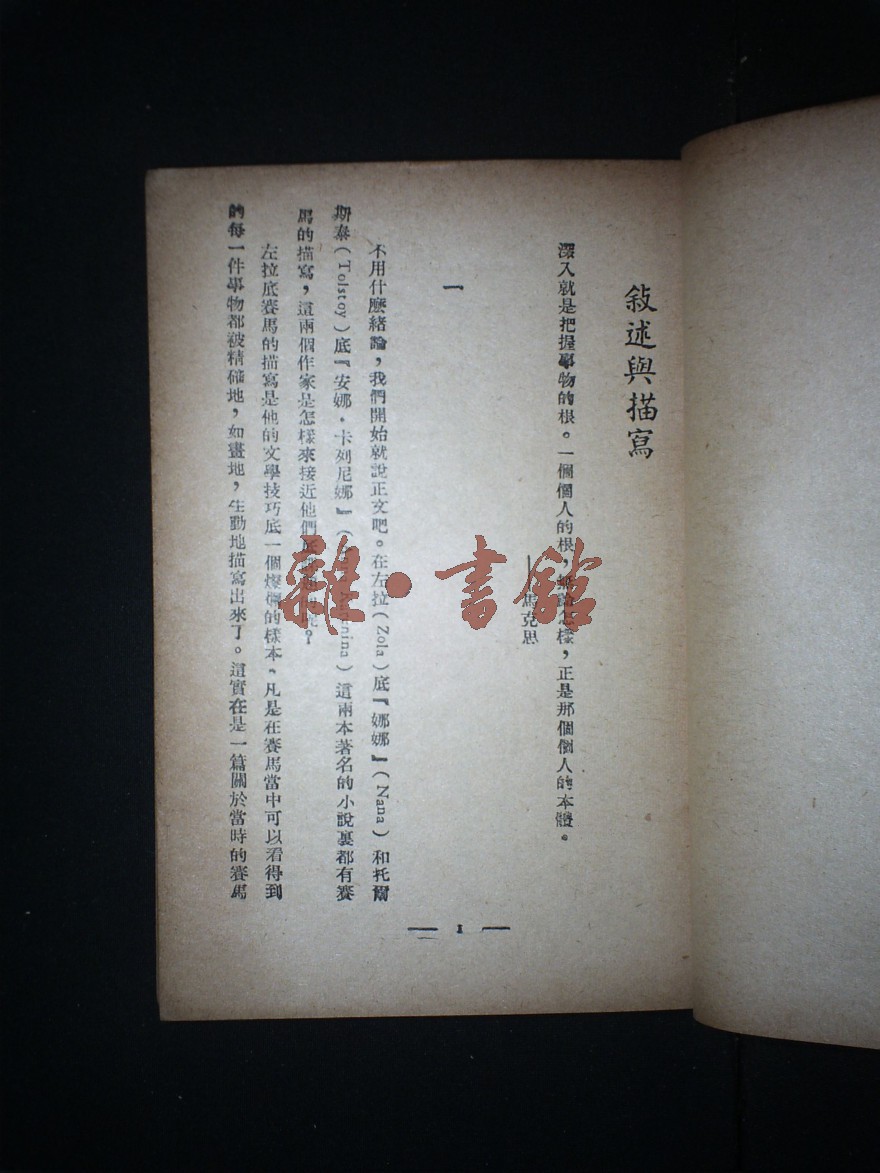 敍述與描寫
深入就是把握事物的根。一個個人的根，無論怎樣，正是那個個人的本體。
——馬克思
一
不用什麽緒論，我們開始就說正文吧。在左拉（Zola）底『娜娜』（Nana）和托爾
斯泰（Tolstoy）底『安娜·卡列尼娜』（Anna Karenina）這兩本著名的小說裏都有賽
馬的描寫，這兩個作家是怎樣來接近他們底呢？
左拉底賽馬的描寫是他的文學技巧底一個燦爛的樣本。凡是在賽馬當中可以看得到
的每一件事物都被精確地，如畫地，生動地描寫出來了。這實在是一篇關於當時的賽馬
— 1 —
雜·書館